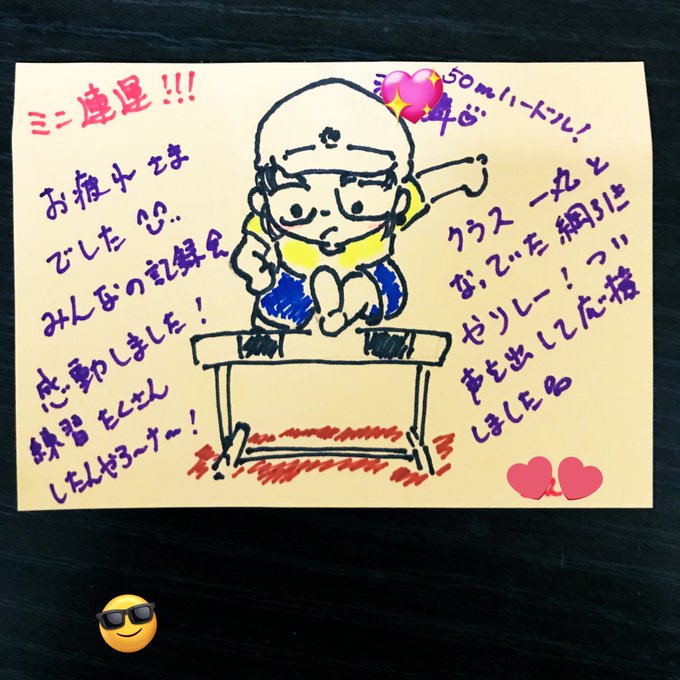 ミニ連運!!!
お疲れさま
でした
みんなの記録会
感動しました!
練習たくさん
したんやろ〜な〜!
50mハードル!
クラス一丸と
なっていた綱引き
やリレー!つい
声を出して応援
しました